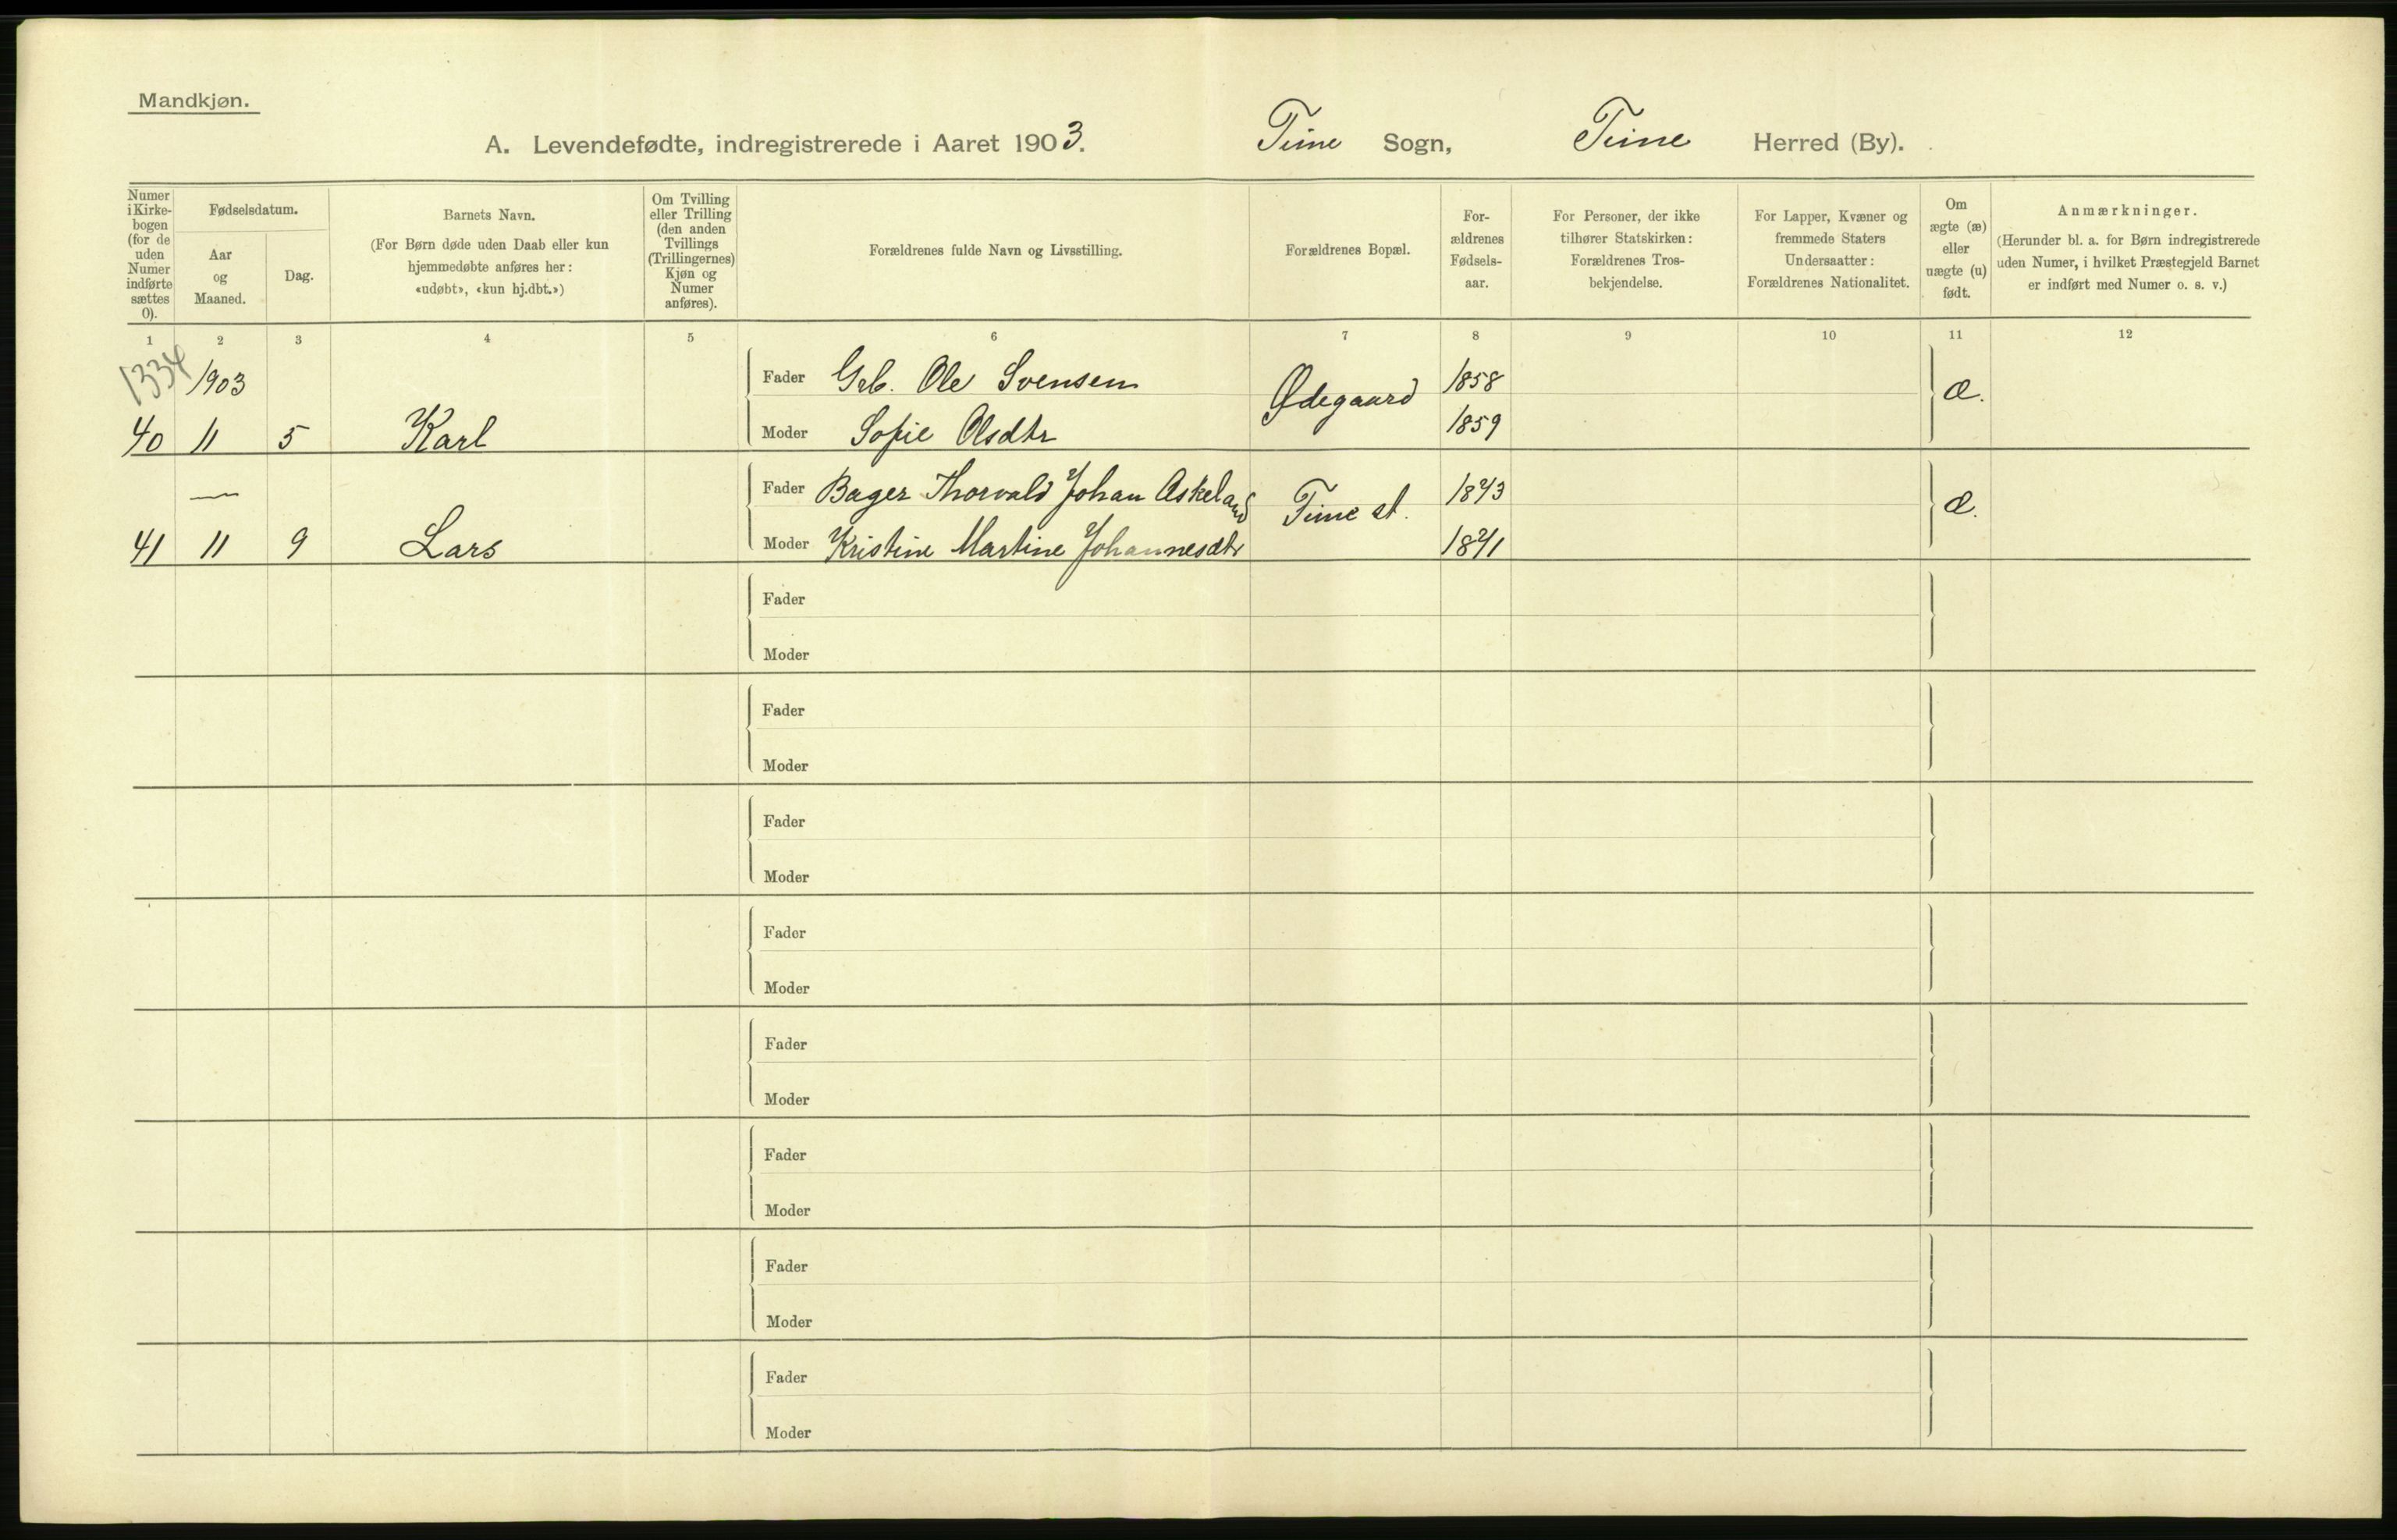 Mandkjøn.
A. Levendefødte, indregistrerede i Aaret 1903. Time Sogn, Time Herred (By).
Numer i Kirke-bogen (for de uden Numer indførte sættes 0).
Fødselsdatum.
Aar og Maaned.
Dag.
Barnets Navn.
(For Børn døde uden Daab eller kun
hjemmedøbte anføres her:
«udøbt», «kun hj.dbt.»)
Om Tvilling
eller Trilling
(den anden
Tvillings
(Trillingernes)
Kjøn og
Numer
anføres).
Forældrenes fulde Navn og Livsstilling.
Forældrenes Bopæl.
For-
ældrenes
Fødsels-
aar.
For Personer, der ikke
tilhører Statskirken:
Forældrenes Tros-
bekjendelse.
For Lapper, Kvæner og
fremmede Staters
Undersaatter:
Forældrenes Nationalitet.
Om
ægte (æ)
eller
uægte (u)
født.
Anmærkninger.
(Herunder bl. a. for Børn indregistrerede
uden Numer, i hvilket Præstegjeld Barnet
er indført med Numer o. s. v.)
1 2 3 4 5 6 7 8 9 10 11 12
1334
1903 Fader Grb. Ole Svensen Ødegaard 1858 æ.
40 11 5 Karl Moder Sofie Olsdtr 1859
— Fader Bager Thorvald Johan Askeland Time st. 1873 æ.
41 11 9 Lars Moder Kristine Martine Johannesdtr 1871
Fader
Moder
Fader
Moder
Fader
Moder
Fader
Moder
Fader
Moder
Fader
Moder
Fader
Moder
Fader
Moder